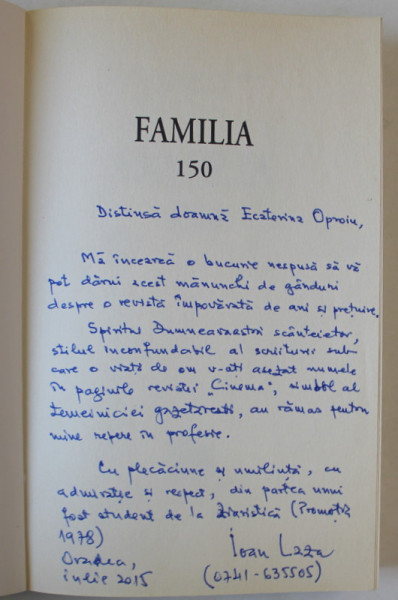 FAMILIA
150
Distinsă doamnă Ecaterina Oproiu,
Mă încearcă o bucurie nespusă să vă
pot dărui acest mănunchi de gânduri
despre o revistă împovărată de ani și prețuire.
Spiritul Dumneavoastră scânteietor,
stilul inconfundabil al scriiturii sub
care o viață de om v-ați așezat numele
în paginile revistei „Cinema”, simbol al
temeiniciei gazetărești, au rămas pentru
mine repere în profesie.
Cu plecăciune și umilință, cu
admirație și respect, din partea unui
fost student de la Ziaristică (Promoția
1978)
Oradea,
iulie 2015
Ioan Laza
(0741-635505)